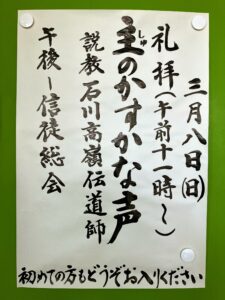 三月八日(日)
礼拝(午前十一時〜)
主のかすかな声
しゅ
説教 石川高嶺伝道師
午後ー信徒総会
初めての方もどうぞお入りください